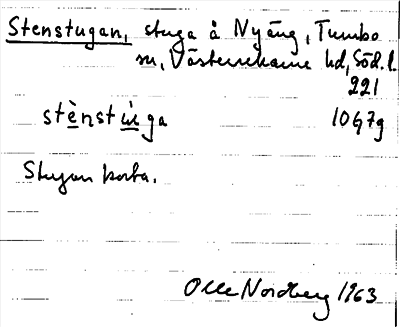 Stenstugan, stuga å Nyäng, Tumbo
sn, Västerrekarne hd, Söd. l.
221
stènstùga 10G7g
Stugan borta.
Olle Nordberg 1963